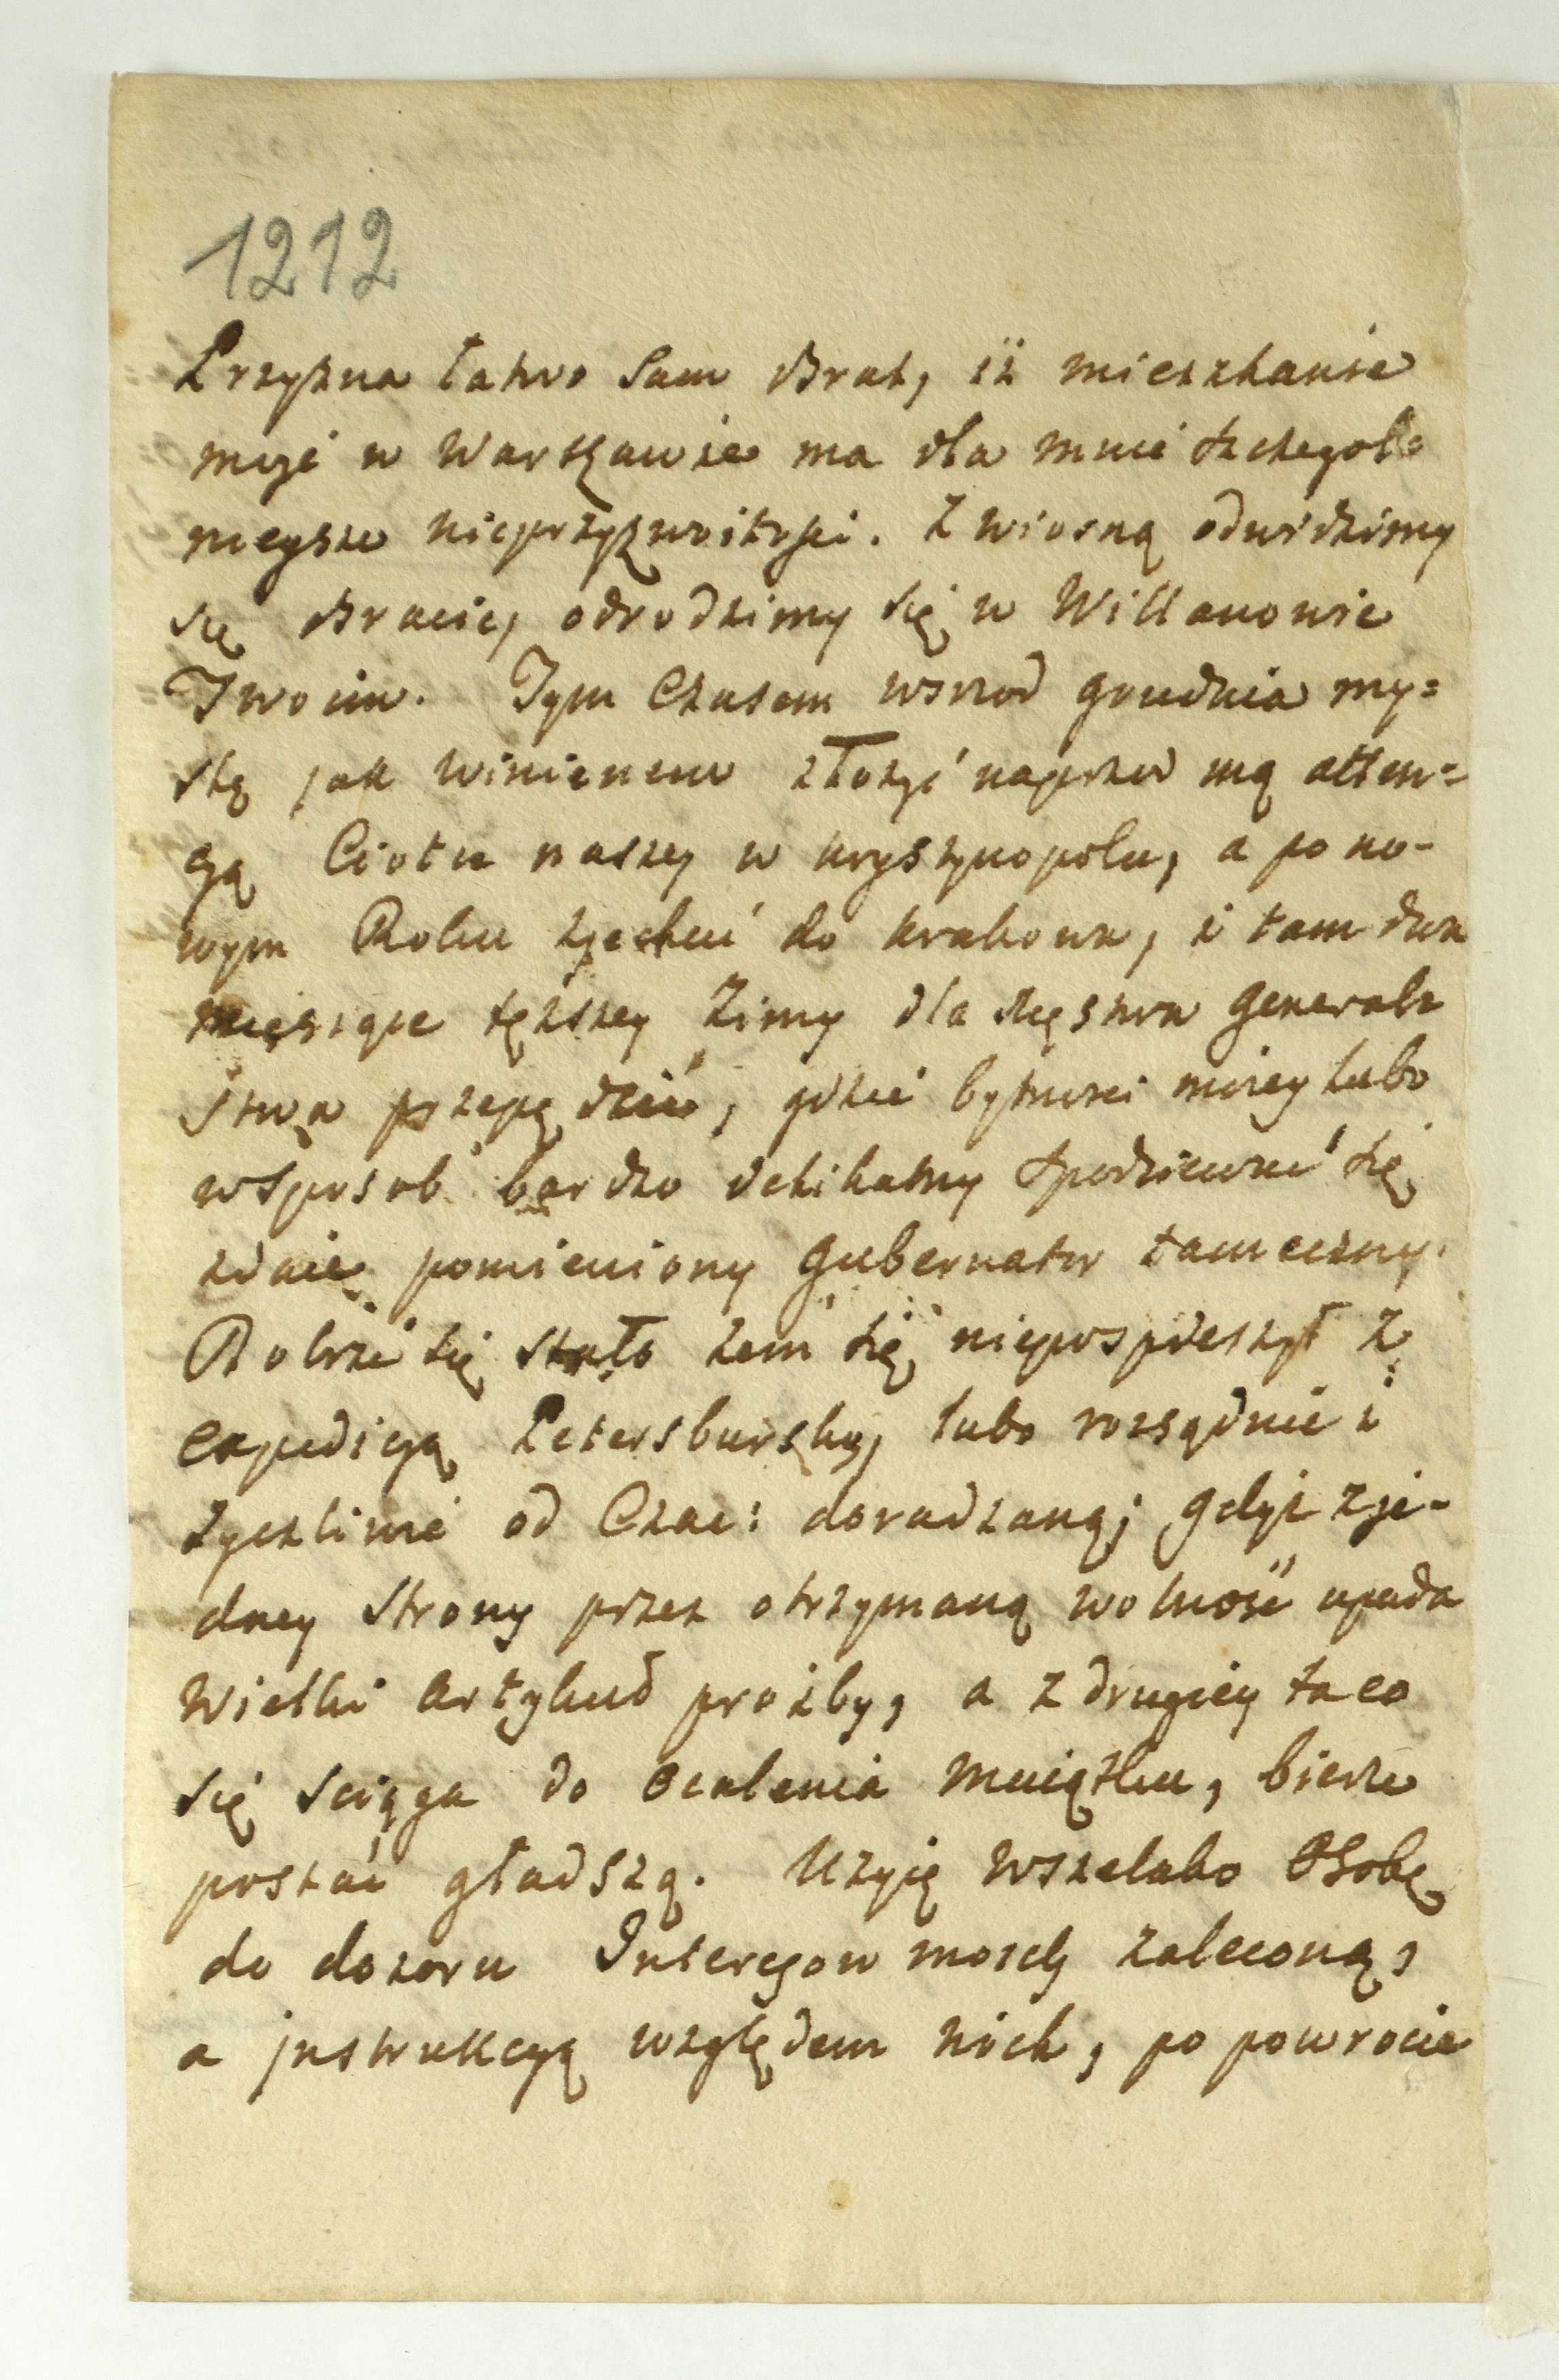 1212
Przyzna łatwo Sam Brat, iż mieszkanie
moje w Warszawie ma dla mnie szczegol=
nieysze nieprzyzwoitości. Z wiosną odwidzimy
się Bracie, odrodzimy się w Willanowie
Twoim. Tym Czasem wsrzod grudnia my=
slę jak winienem złożyć naprzod mą atten=
cyą Ciotce naszey w Krystynopolu, a po no-
wym Roku zjechać do Krakowa, i tam dwa
miesiące tęższey Zimy dla
stwa przepędzić, gdzie bytności moiey lubo
w sposob bardzo delikatny spodziewać się
zdaie pomieniony Gubernator tameczny.
Dobrze się stało żem się niepospieszył z
expedicyą Petersburską, lubo rozsądnie i
życzliwie od Czac: doradzaną; gdyż z je-
dney Strony przez otrzymaną wolność upada
Wielki Artykuł prożby, a z drugiey to co
się sciąga do ocalenia Maiątku, bierze
postać gładszą. Użyię wszelako Osobę
do dozoru Interesow moich zaleconą,
a jnstrukcyą względem nich, po powrocie